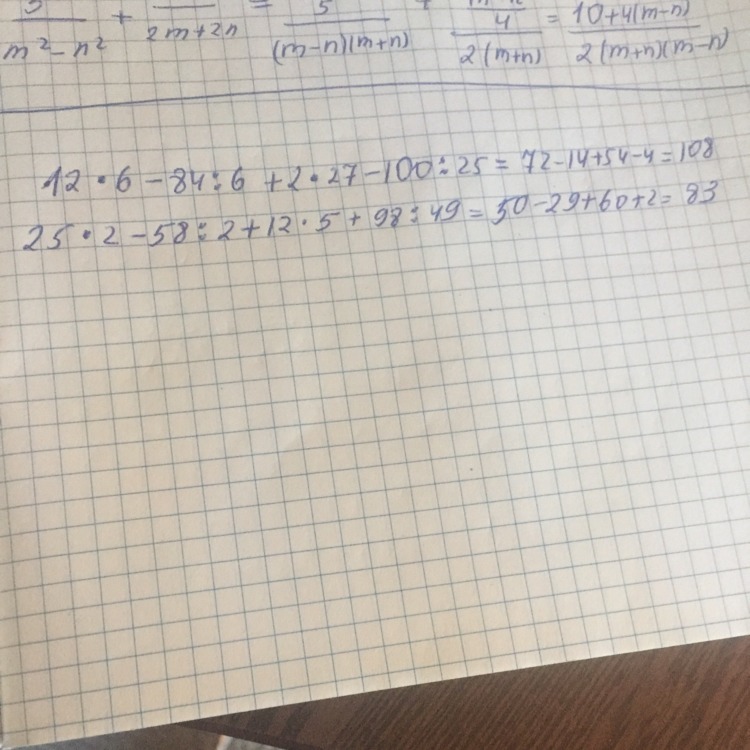 5/(m²-n²) + /(2m+2n) = 5/((m-n)(m+n)) + 4/(2(m+n)) = (10+4(m-n))/(2(m+n)(m-n))
12·6-84:6+2·27-100:25=72-14+54-4=108
25·2-58:2+12·5+98:49=50-29+60+2=83